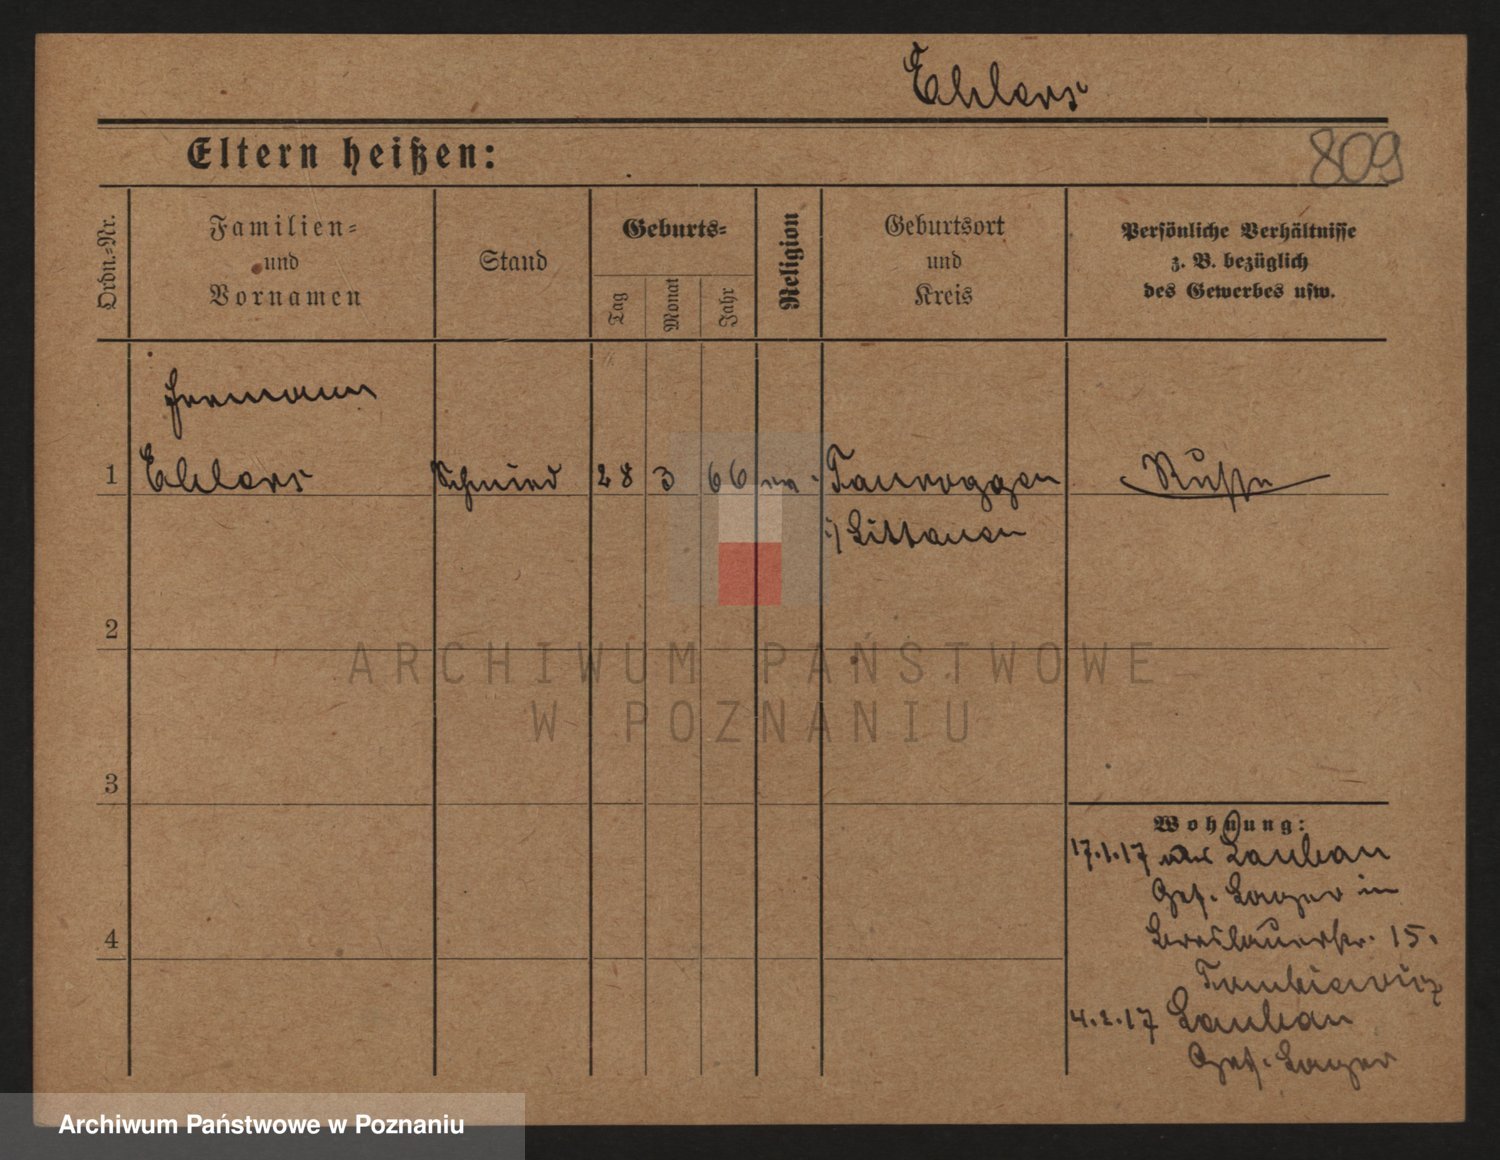 Ehlers
Eltern heißen:
809
Ordn.-Nr.
Familien-
und
Vornamen
Stand
Geburts-
Tag
Monat
Jahr
Religion
Geburtsort
und
Kreis
Persönliche Verhältnisse
z. B. bezüglich
des Gewerbes usw.
Hermann
1 Ehlers Schmied 28 3 66 Tauroggen Russe
i/ Littauen
2
3
4
Wohnung:
17.1.17 aus Lauban
Gef. Lager in
Breslauerstr. 15.
4.2.17 Lauban
Gef. Lager
ARCHIWUM PAŃSTWOWE
W POZNANIU
Archiwum Państwowe w Poznaniu